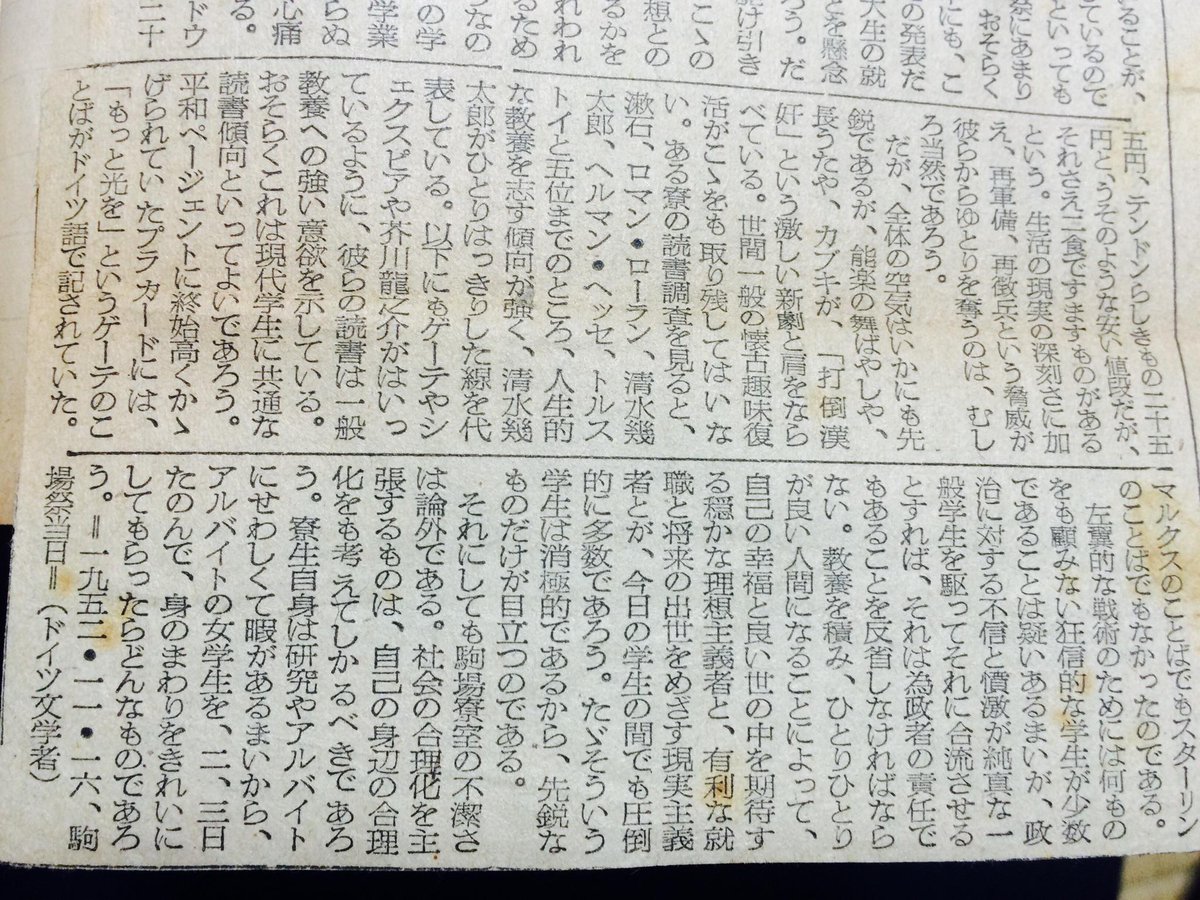 いることが、
ているので
といっても
祭にあまり
おそらく
にも、こ
の発表だ
大生の就
とを懸念
駆け引き
ろう。だ
こゝの
想との
るかを
れわれ
るため
うなの
の学
学業
らぬ
心痛
る。
ドウ
二十
五円、テンドンらしきもの二十五
円と、うそのような安い値段だが、
それさえ二食ですますものがある
という。生活の現実の深刻さに加
え、再軍備、再徴兵という脅威が
彼らからゆとりを奪うのは、むし
ろ当然であろう。
だが、全体の空気はいかにも先
鋭であるが、能楽の舞ばやしや、
長うたや、カブキが、「打倒漢
奸」という激しい新劇と肩をなら
べている。世間一般の懐古趣味復
活がこゝをも取り残してはいな
い。ある寮の読書調査を見ると、
漱石、ロマン・ローラン、清水幾
太郎、ヘルマン・ヘッセ、トルス
トイと五位までのところ、人生的
な教養を志す傾向が強く、清水幾
太郎がひとりはっきりした線を代
表している。以下にもゲーテやシ
ェクスピアや芥川龍之介がはいっ
ているように、彼らの読書は一般
教養への強い意欲を示している。
おそらくこれは現代学生に共通な
読書傾向といってよいであろう。
平和ページェントに終始高くかゝ
げられていたプラカードには、
「もっと光を」というゲーテのこ
とばがドイツ語で記されていた。
マルクスのことばでもスターリン
のことばでもなかったのである。
左翼的な戦術のためには何もの
をも顧みない狂信的な学生が少数
であることは疑いあるまいが、政
治に対する不信と憤激が純真な一
般学生を駆ってそれに合流させる
とすれば、それは為政者の責任で
もあることを反省しなければなら
ない。教養を積み、ひとりひとり
が良い人間になることによって、
自己の幸福と良い世の中を期待す
る穏かな理想主義者と、有利な就
職と将来の出世をめざす現実主義
者とが、今日の学生の間でも圧倒
的に多数であろう。たゞそういう
学生は消極的であるから、先鋭な
ものだけが目立つのである。
それにしても駒場寮室の不潔さ
は論外である。社会の合理化を主
張するものは、自己の身辺の合理
化をも考えてしかるべきであろ
う。寮生自身は研究やアルバイト
にせわしくて暇があるまいから、
アルバイトの女学生を、二、三日
たのんで、身のまわりをきれいに
してもらったらどんなものであろ
う。＝一九五二・一一・一六、駒
場祭当日＝（ドイツ文学者）